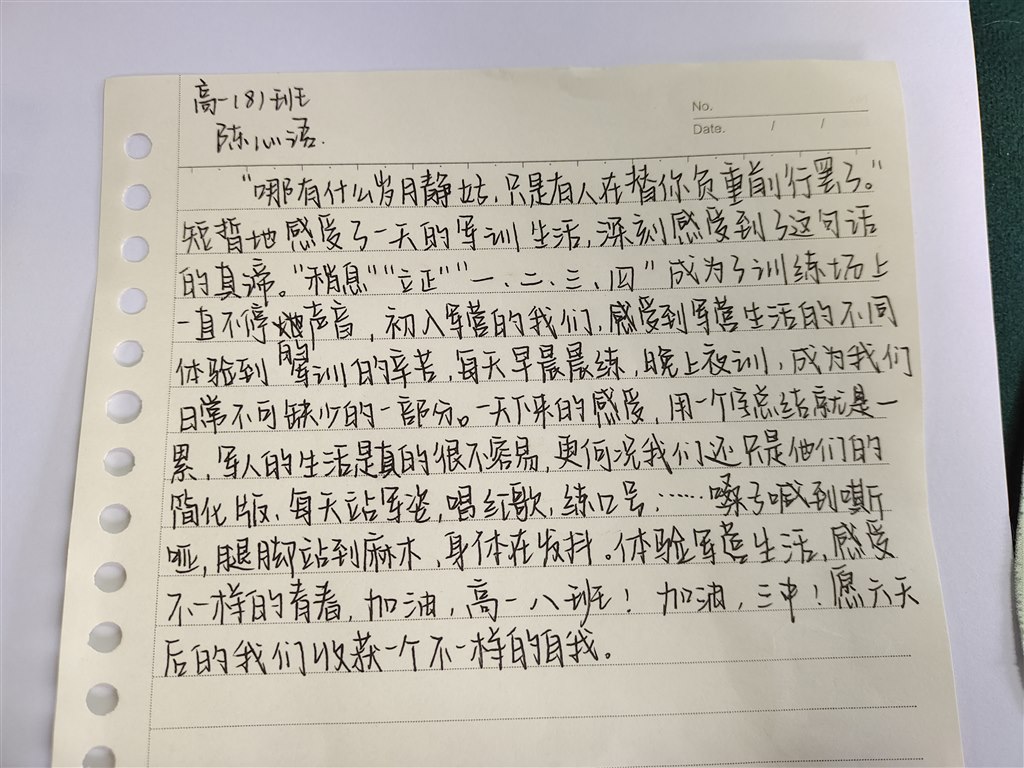 高一(8)班
陈心语.
No.
Date. / /
"哪有什么岁月静姑,只是有人在替你负重前行罢了。"
短暂地感受了一天的军训生活,深刻感受到了这句话
的真谛。"稍息""立正""一、二、三、四"成为了训练场上
一直不停的声音,初入军营的我们,感受到军营生活的不同
体验到军训的辛苦,每天早晨晨练,晚上夜训,成为我们
日常不可缺少的一部分。一天下来的感受,用一个字总结就是一
累,军人的生活是真的很不容易,更何况我们还只是他们的
简化版,每天站军姿,唱红歌,练口号……嗓子喊到嘶
哑,腿脚站到麻木,身体在发抖。体验军营生活,感受
不一样的青春,加油,高一八班!加油,三中!愿六天
后的我们收获一个不一样的自我。